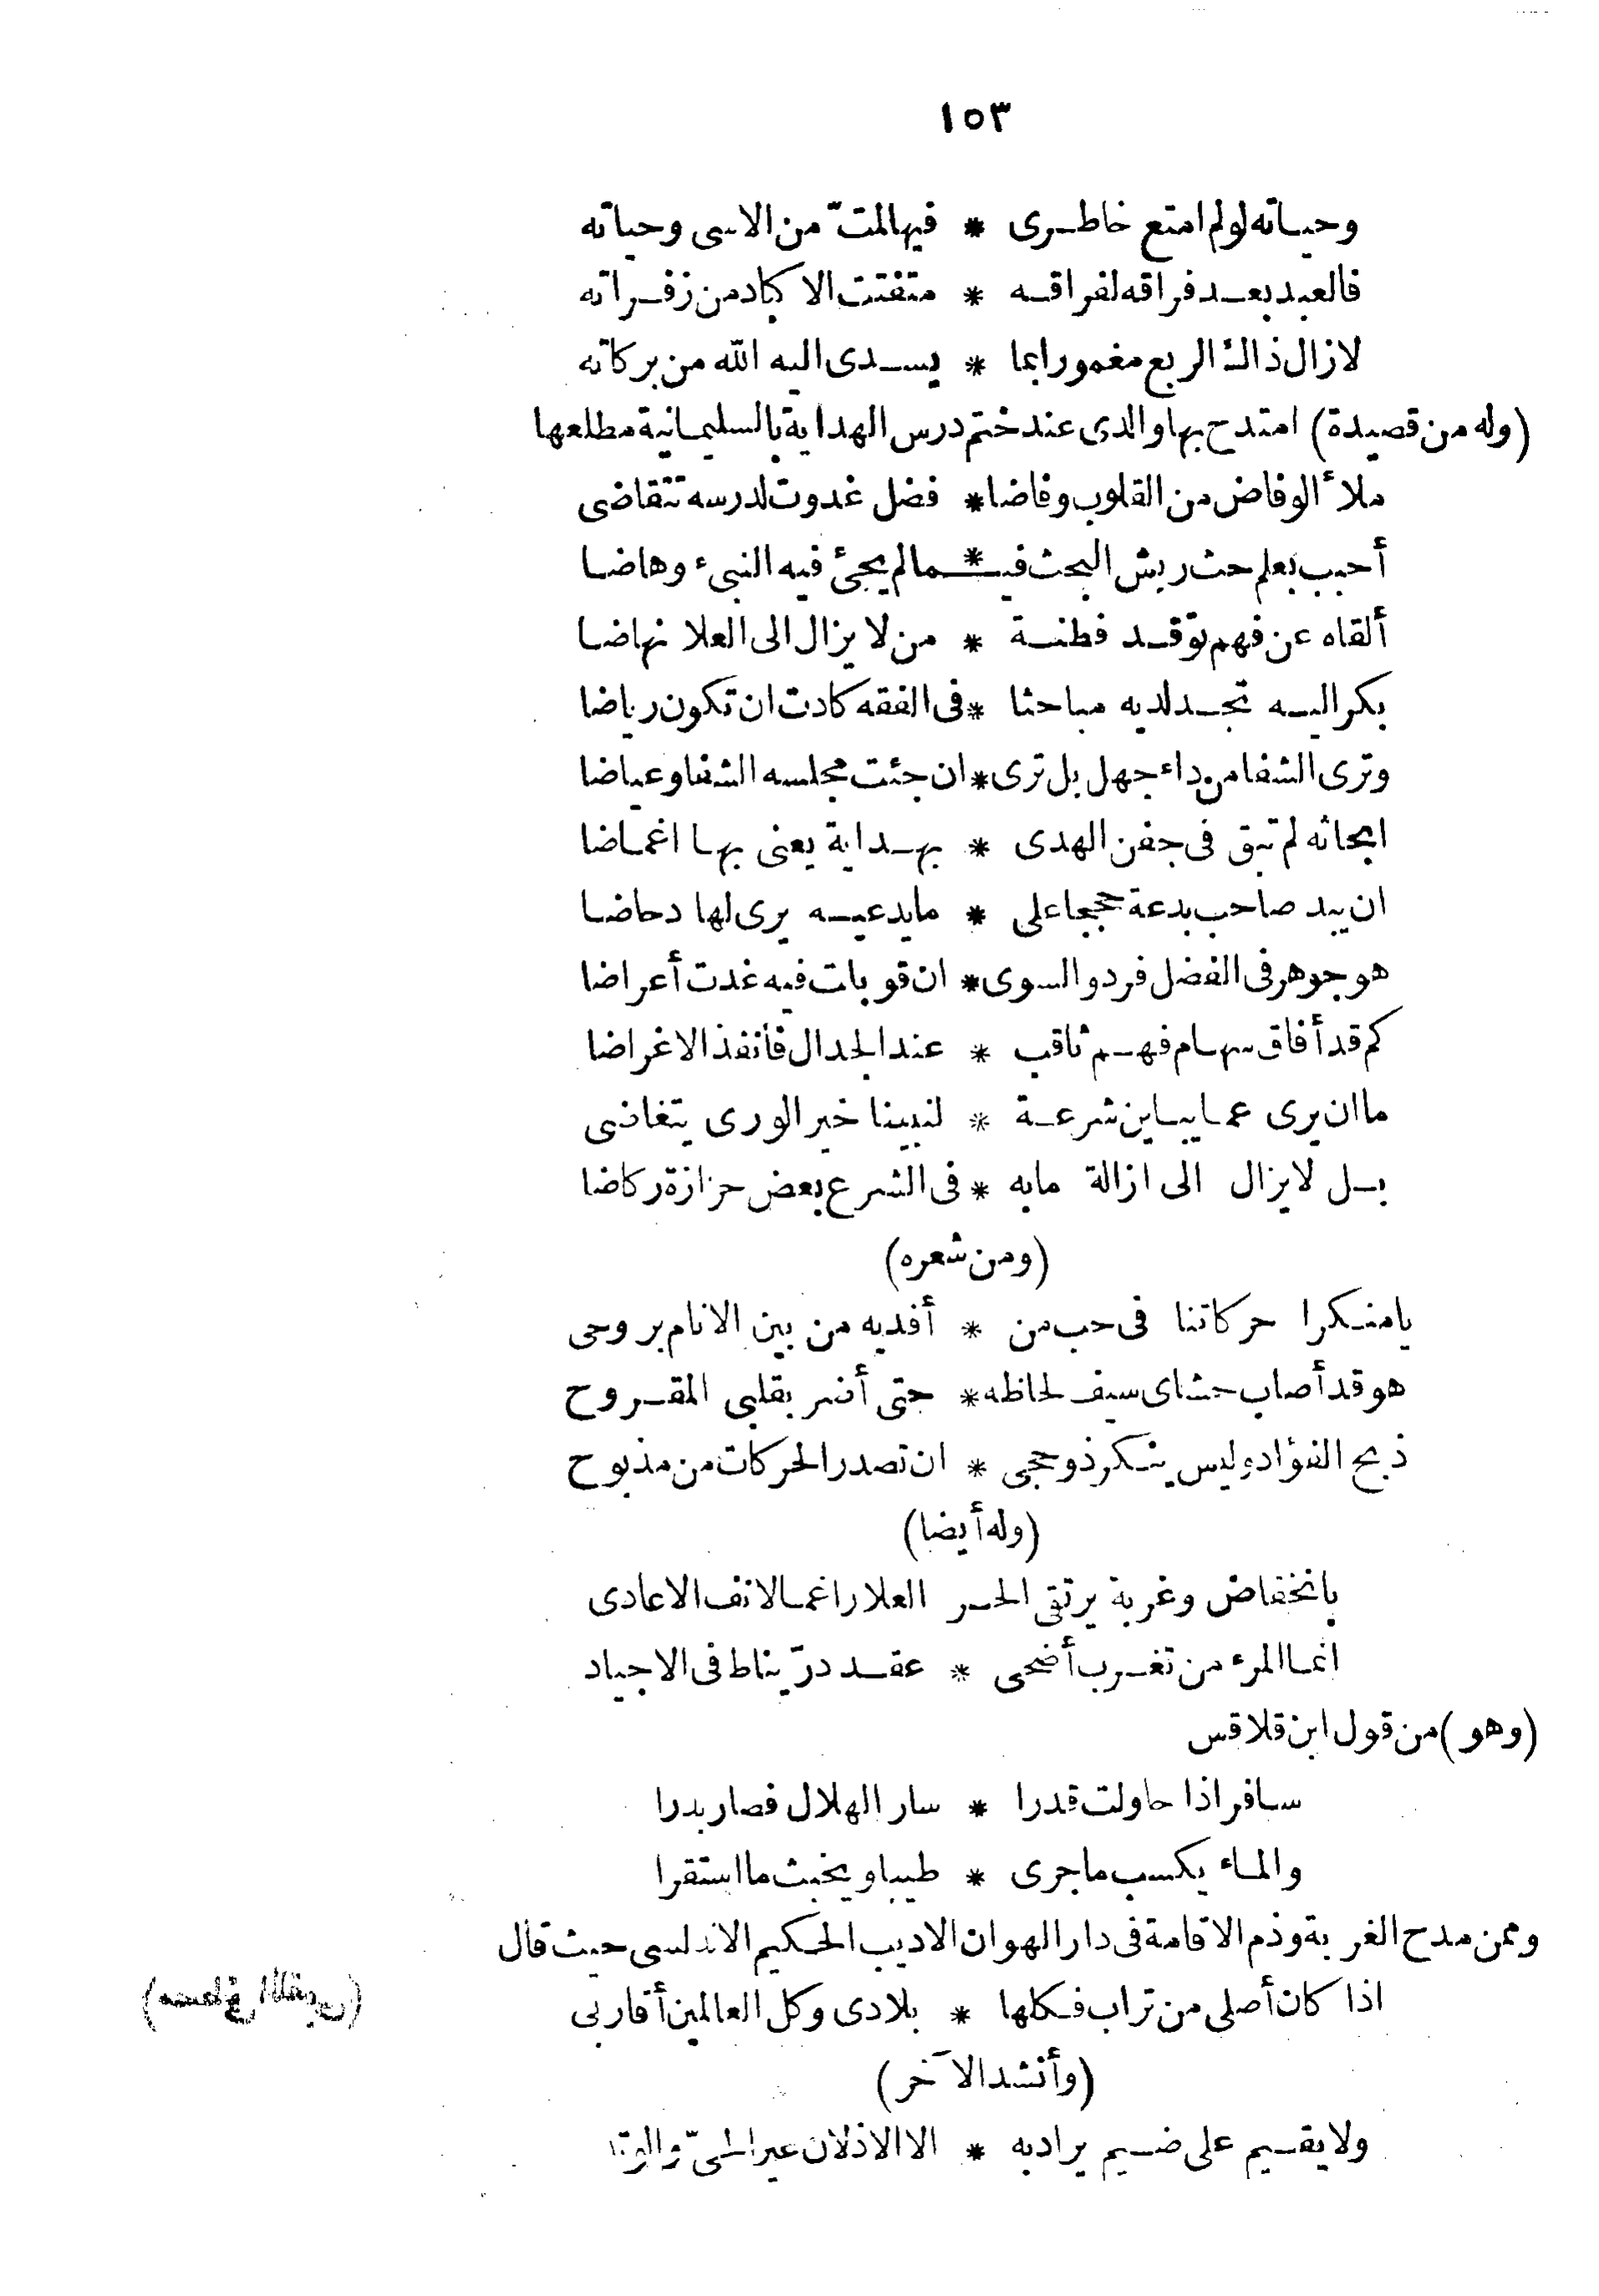 ١٥٣
وحياته لولم امتع خاطرى * فيها لمتّ من الاسى وحياته
فالعبد بعد فراقه لفراقه * متفتت الاكباد من زفراته
لازال ذاك الربع مغمورا بما * يسدى اليه الله من بركاته
(وله من قصيدة) امتدح بها والدى عند ختم درس الهداية بالسليمانية مطلعها
ملأ الوفاض من القلوب وفاضا * فضل غدوت لدرسه تتقاضى
أحبب بعلم حث ريش البحث فيـ*ـما لم يجئ فيه النبىء وهاضا
ألقاه عن فهم توقد فطنة * من لا يزال الى العلا نهاضا
بكر اليه تجد لديه مباحثا * فى الفقه كادت ان تكون رياضا
وترى الشفا من داء جهل بل ترى * ان جئت مجلسه الشفا وعياضا
ابحاثه لم تبق فى جفن الهدى * بهداية يعنى بها اغماضا
ان يبد صاحب بدعة حججا على * ما يدعيه يرى لها دحاضا
هو جوهر فى الفضل فرد والسوى * ان قوبلت فيه غدت أعراضا
كم قد أفاق سهام فهم ثاقب * عند الجدال فأنفذ الاغراضا
ما ان يرى عما يباين شرعة * لنبينا خير الورى يتغاضى
بل لا يزال الى ازالة مابه * فى الشرع بعض حزازة ركاضا
(ومن شعره)
يا منكرا حركاتنا فى حب من * أفديه من بين الانام بروحى
هو قد أصاب حشاى سيف لحاظه * حتى أضر بقلبى المقروح
ذبح الفؤاد وليس ينكر ذو حجى * ان تصدر الحركات من مذبوح
(وله أيضا)
بانخفاض وغربة يرتقى الحر العلا راغما لانف الاعادى
انما المرء من تغرب أضحى * عقد درّ يناط فى الاجياد
(وهو) من قول ابن قلاقس
سافر اذا حاولت قدرا * سار الهلال فصار بدرا
والماء يكسب ما جرى * طيبا ويخبث ما استقرا
وممن مدح الغربة وذم الاقامة فى دار الهوان الاديب الحكيم الاندلسى حيث قال
اذا كان أصلى من تراب فكلها * بلادى وكل العالمين أقاربى
(وأنشد الآخر)
ولا يقيم على ضيم يراد به * الا الاذلان عير الحىّ والوتد